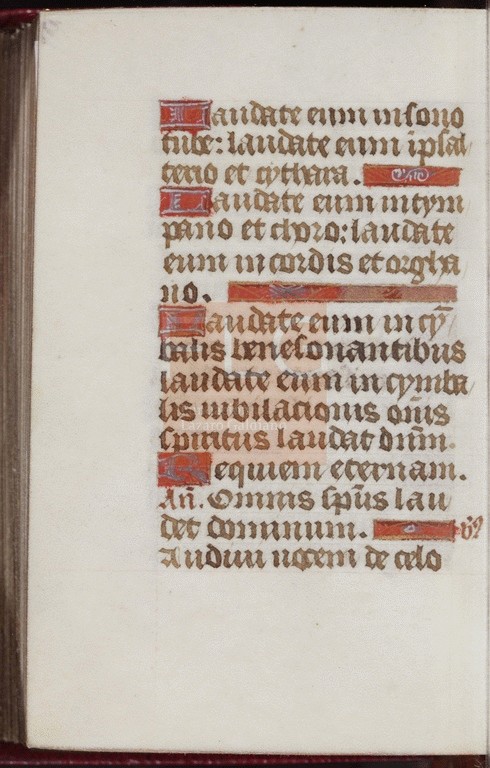 Laudate eum in sono
tube: laudate eum ī psal
terio et cythara.
Laudate eum in tym
pano et choro: laudate
eum in cordis et orgha
no.
Laudate eum in cȳ
balis benesonantibus
laudate eum in cymba
lis iubilacionis oīs
spiritus laudat dūm.
Requiem eternam.
Añ. Omnis sp̄us lau
det dominum. v̓9
Audiui uocem de celo
Lázaro Galdiano